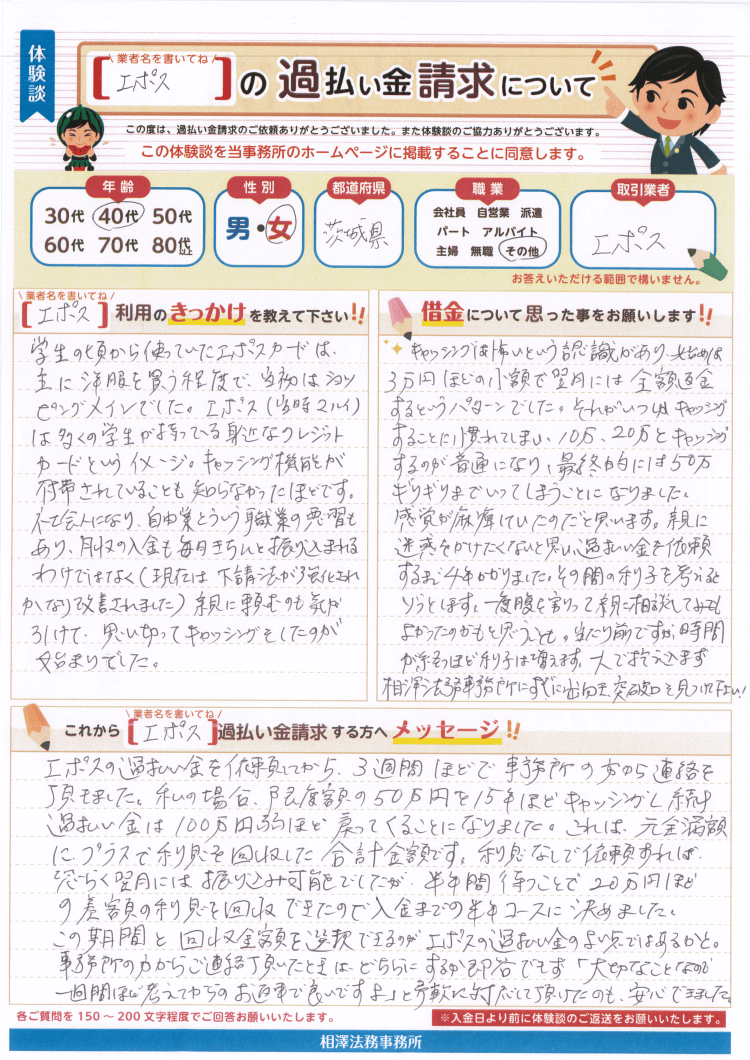 体験談
業者名を書いてね
[エポス]の過払い金請求について
この度は、過払い金請求のご依頼ありがとうございました。また体験談のご協力ありがとうございます。
この体験談を当事務所のホームページに掲載することに同意します。
年齢
30代 40代 50代
60代 70代 80代以上
性別
男・女
都道府県
茨城県
職業
会社員 自営業 派遣
パート アルバイト
主婦 無職 その他
取引業者
エポス
お答えいただける範囲で構いません。
業者名を書いてね
[エポス]利用のきっかけを教えて下さい!!
学生の頃から使っていたエポスカードは、
主に洋服を買う程度で、当初はショッ
ピングメインでした。エポス(当時マルイ)
は多くの学生が持っている身近なクレジット
カードというイメージ。キャッシング機能が
付帯されていることも知らなかったほどです。
社会人になり、自由業という職業の悪習も
あり、月収の入金も毎月きちんと振り込まれる
わけではなく(現在は下請法が強化され
かなり改善されました)親に頼むのも気が
引けて、思い切ってキャッシングをしたのが
始まりでした。
借金について思った事をお願いします!!
キャッシングは怖いという認識があり、始めは
3万円ほどの小額で翌月には全額返金
するというパターンでした。それがいつしかキャッシング
することに慣れてしまい、10万、20万とキャッシング
するのが普通になり、最終的には50万
ギリギリまでいってしまうことになりました。
感覚が麻痺していたのだと思います。親に
迷惑をかけたくないと思い、過払い金を依頼
するまで4年かかりました。その間の利子を考えると
ゾッとします。一度腹を割って親に相談してみても
よかったのかもと思うことも。当たり前ですが、時間
が経るほど利子は増えます。人で抱え込まず
相澤法務事務所にすぐに出向き、突破口を見つけて下さい!
これから
業者名を書いてね
[エポス]過払い金請求する方へメッセージ!!
エポスの過払い金を依頼してから、3週間ほどで事務所の方から連絡を
頂きました。私の場合、限度額の50万円を15年ほどキャッシングし続け
過払い金は100万円弱ほど戻ってくることになりました。これは、元金満額
にプラスで利息を回収した合計金額です。利息なしで依頼すれば、
恐らく翌月には振り込み可能でしたが、半年間待つことで20万円ほど
の差額の利息を回収できたので入金までの半年コースに決めました。
この期間と回収金額を選択できるのがエポスの過払い金のよい点ではあるかと。
事務所の方からご連絡頂いたときは、どちらにするか即答できず「大切なことなので
一週間ほど考えてからのお返事で良いですよ」と柔軟に対応して頂けたのも、安心できました。
各ご質問を150～200文字程度でご回答お願いいたします。
※入金日より前に体験談のご返送をお願いいたします。
相澤法務事務所